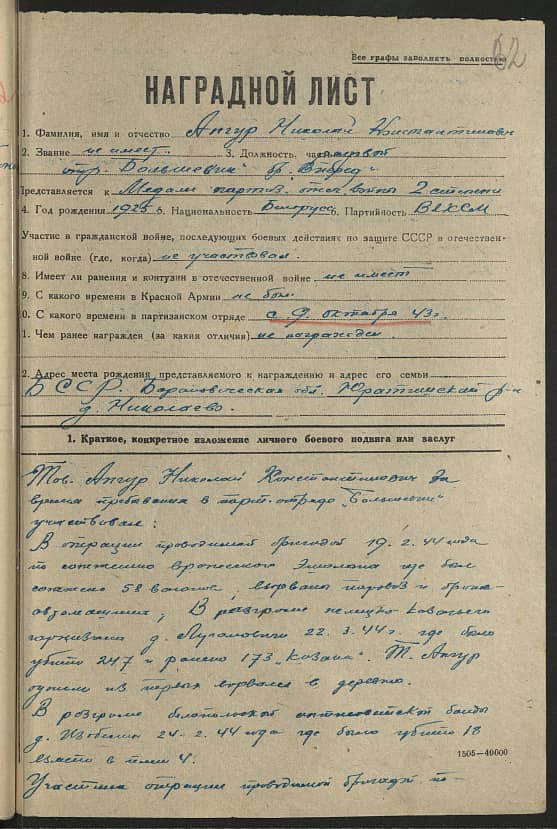 Все графы заполнять полностью
62
НАГРАДНОЙ ЛИСТ
1. Фамилия, имя и отчество Ангур Николай Константинович
2. Звание не имеет. 3. Должность, часть
отр. "Большевик" бр. "Вперед"
Представляется к Медали партиз. отеч. войны 2 степени
4. Год рождения 1925 5. Национальность Белорусс 6. Партийность ВЛКСМ
Участие в гражданской войне, последующих боевых действиях по защите СССР в отечествен-
ной войне (где, когда) не участвовал.
8. Имеет ли ранения и контузии в отечественной войне не имеет
9. С какого времени в Красной Армии не был.
0. С какого времени в партизанском отряде с 9 октября 43 г.
1. Чем ранее награжден (за какия отличия) не награжден.
2. Адрес места рождения представляемого к награждению и адрес его семьи
БССР. Барановическая обл. Юратишский р-н
д. Николаево.
1. Краткое, конкретное изложение личного боевого подвига или заслуг
Тов. Ангур Николай Константинович за
время пребывания в парт. отряде "Большевик"
участвовал:
В операции проводимой бригадой 19. 2. 44 года
по сожжению вражеского эшелона где был
сожжено 58 вагонов, взорваны паровоз и броне-
автомашина, В разгроме немецко казачьего
гарнизона д. 22. 3. 44 г. где было
убито 247 и ранено 173 "казака". Т. Ангур
одним из первых ворвался в деревню.
В разгроме белопольской антисоветской банды
д. Изобелин 24- 2. 44 года где было убито 18
взято в плен 4.
1505—40000
Участник операции проводимой бригадой по-